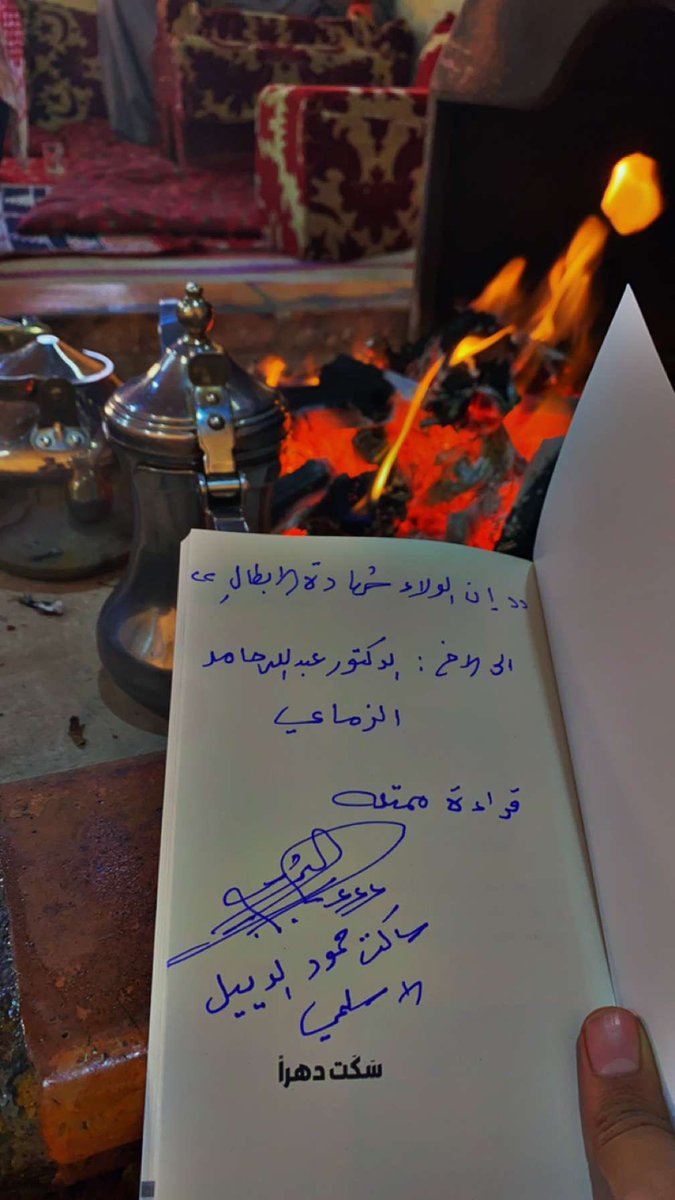 "إن الولاء شهادة الأبطالِ"
الى الاخ : الدكتور عبدالله حامد
الزماعي
قراءة ممتعه
ساكت حمود الدبيل
الاسلمي
سَكَت دهراً